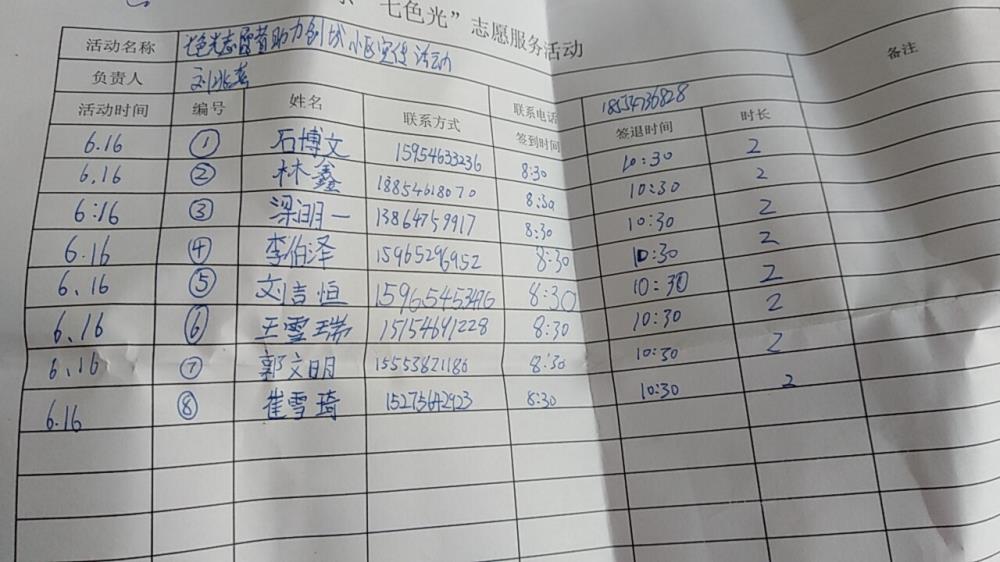 “七色光”志愿服务活动
活动名称 七色光志愿者助力创城小区宣传活动 备注
负责人 联系电话 18554736828
活动时间 编号 姓名 联系方式 签到时间 签退时间 时长
6.16 ① 石博文 15954633236 8:30 10:30 2
6.16 ② 林鑫 18854618070 8:30 10:30 2
6:16 ③ 梁湖一 13864759917 8:30 10:30 2
6.16 ④ 李伯泽 15965296952 8:30 10:30 2
6.16 ⑤ 刘吉恒 15965453496 8:30 10:30 2
6.16 ⑥ 王雪瑞 15154691228 8:30 10:30 2
6.16 ⑦ 郭文明 15553821186 8:30 10:30 2
6.16 ⑧ 崔雪琦 15273642923 8:30 10:30 2